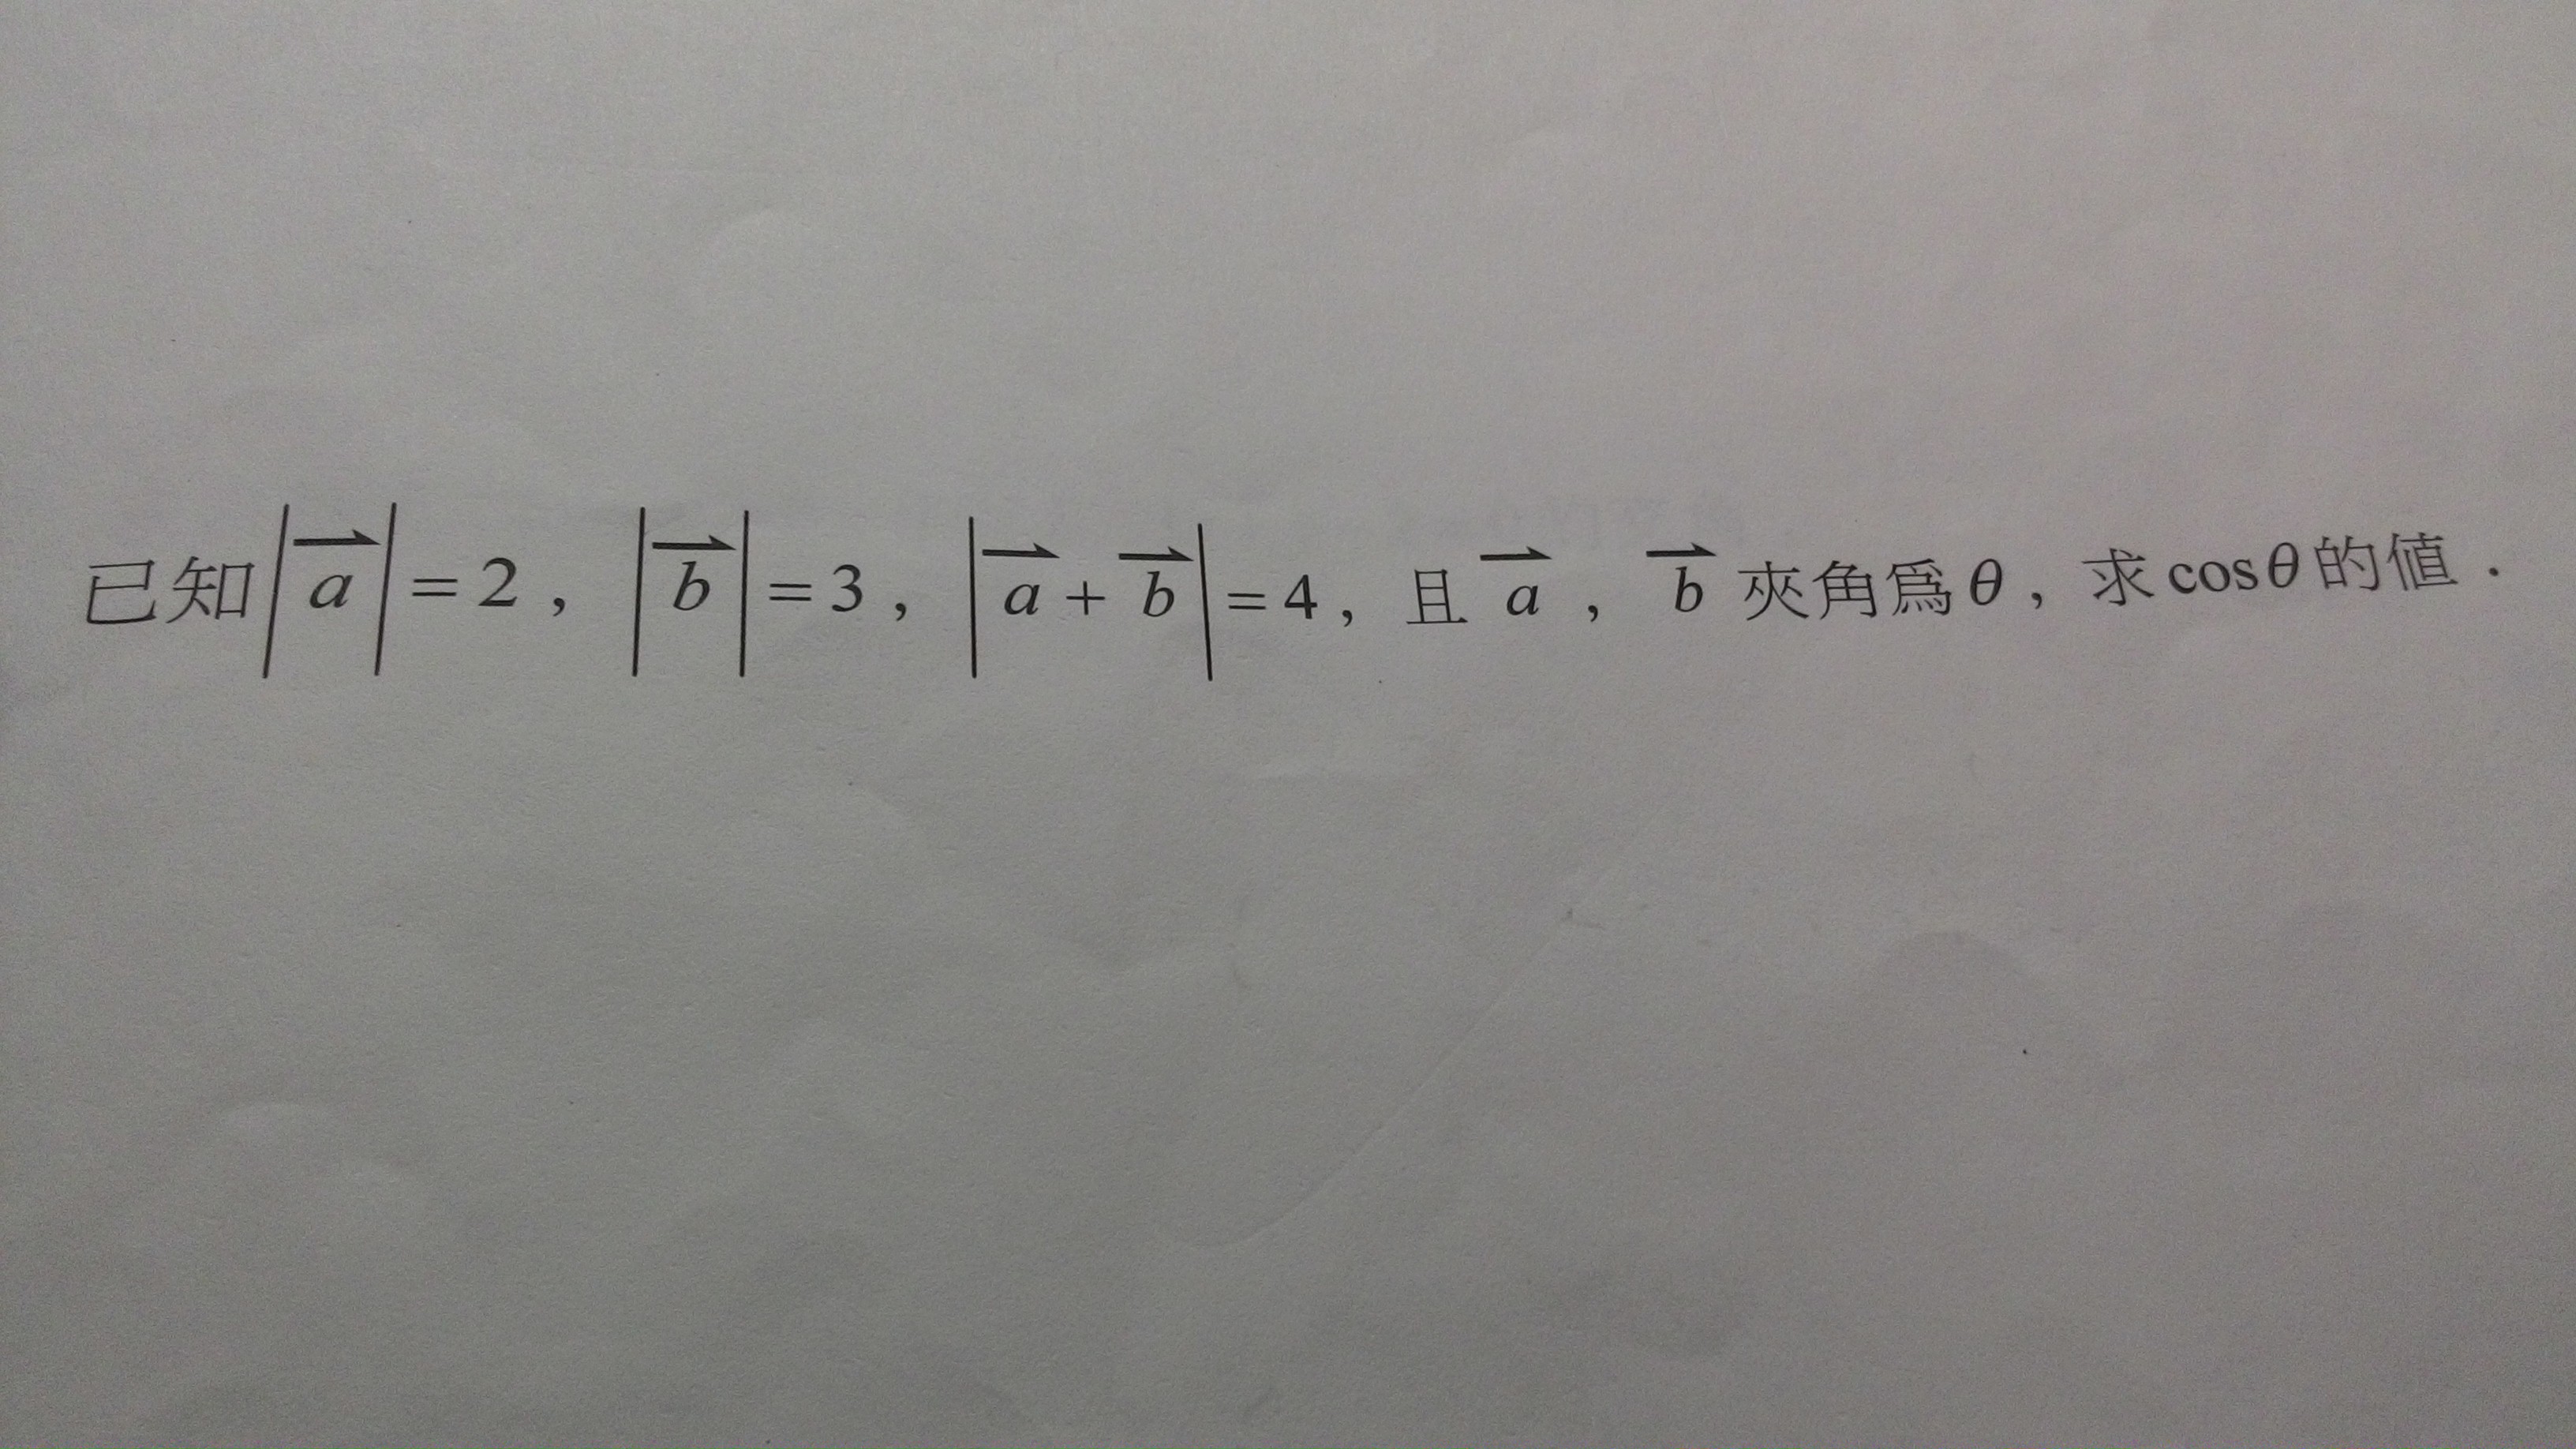 已知|a⃗|=2，|b⃗|=3，|a⃗+b⃗|=4，且a⃗，b⃗夾角爲θ，求cosθ的値．